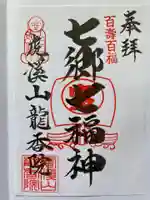 奉拝
百壽百福
七郷七福神
溪山龍香院